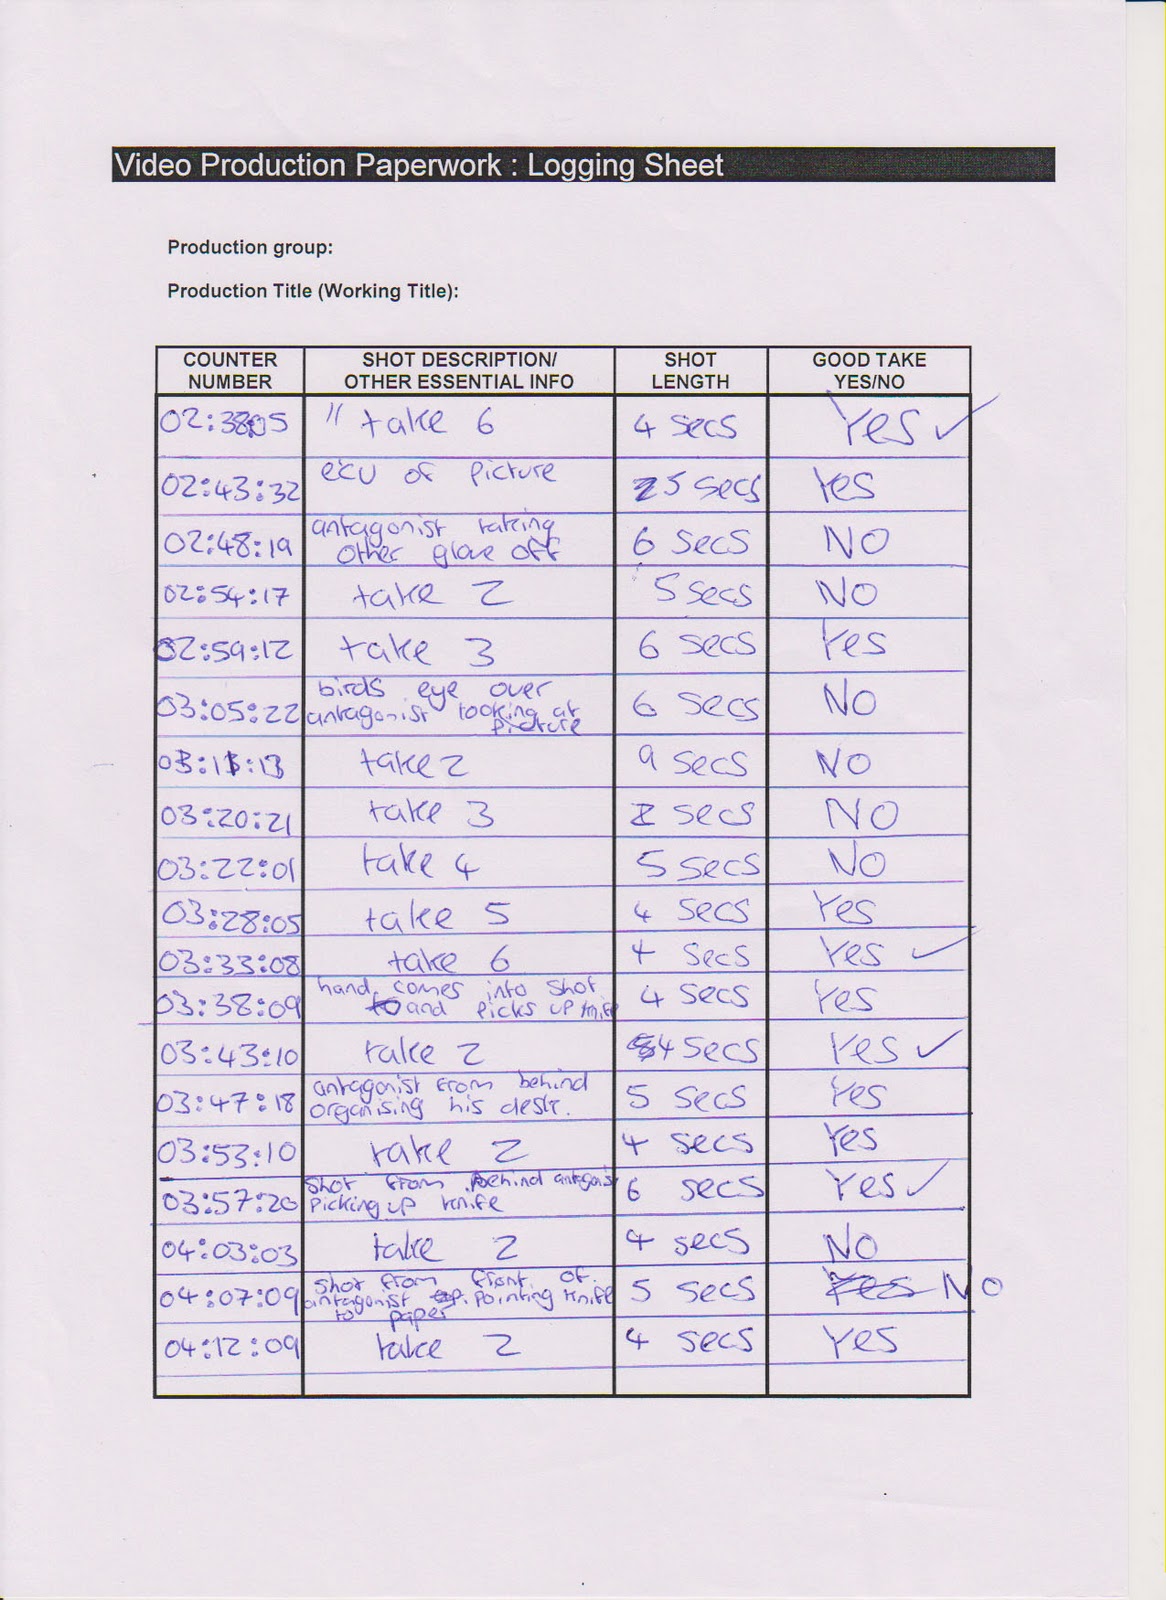 Video Production Paperwork : Logging Sheet
Production group:
Production Title (Working Title):
COUNTER NUMBER SHOT DESCRIPTION/ OTHER ESSENTIAL INFO SHOT LENGTH GOOD TAKE YES/NO
02:38:05 " take 6 4 secs Yes ✓
02:43:32 ecu of picture 5 secs Yes
02:48:19 antagonist taking other glove off 6 secs NO
02:54:17 take 2 5 secs NO
02:59:12 take 3 6 secs Yes
03:05:22 birds eye over antagonist looking at picture 6 secs NO
03:11:13 take 2 9 secs NO
03:20:21 take 3 2 secs NO
03:22:01 take 4 5 secs NO
03:28:05 take 5 4 secs Yes
03:33:08 take 6 4 secs Yes ✓
03:38:09 hand comes into shot and picks up knife 4 secs Yes
03:43:10 take 2 4 secs Yes ✓
03:47:18 antagonist from behind organising his desk. 5 secs Yes
03:53:10 take 2 4 secs Yes
03:57:20 shot from behind antagonist picking up knife 6 secs Yes ✓
04:03:03 take 2 4 secs NO
04:07:09 shot from front of antagonist pointing knife to paper 5 secs Yes NO
04:12:09 take 2 4 secs Yes